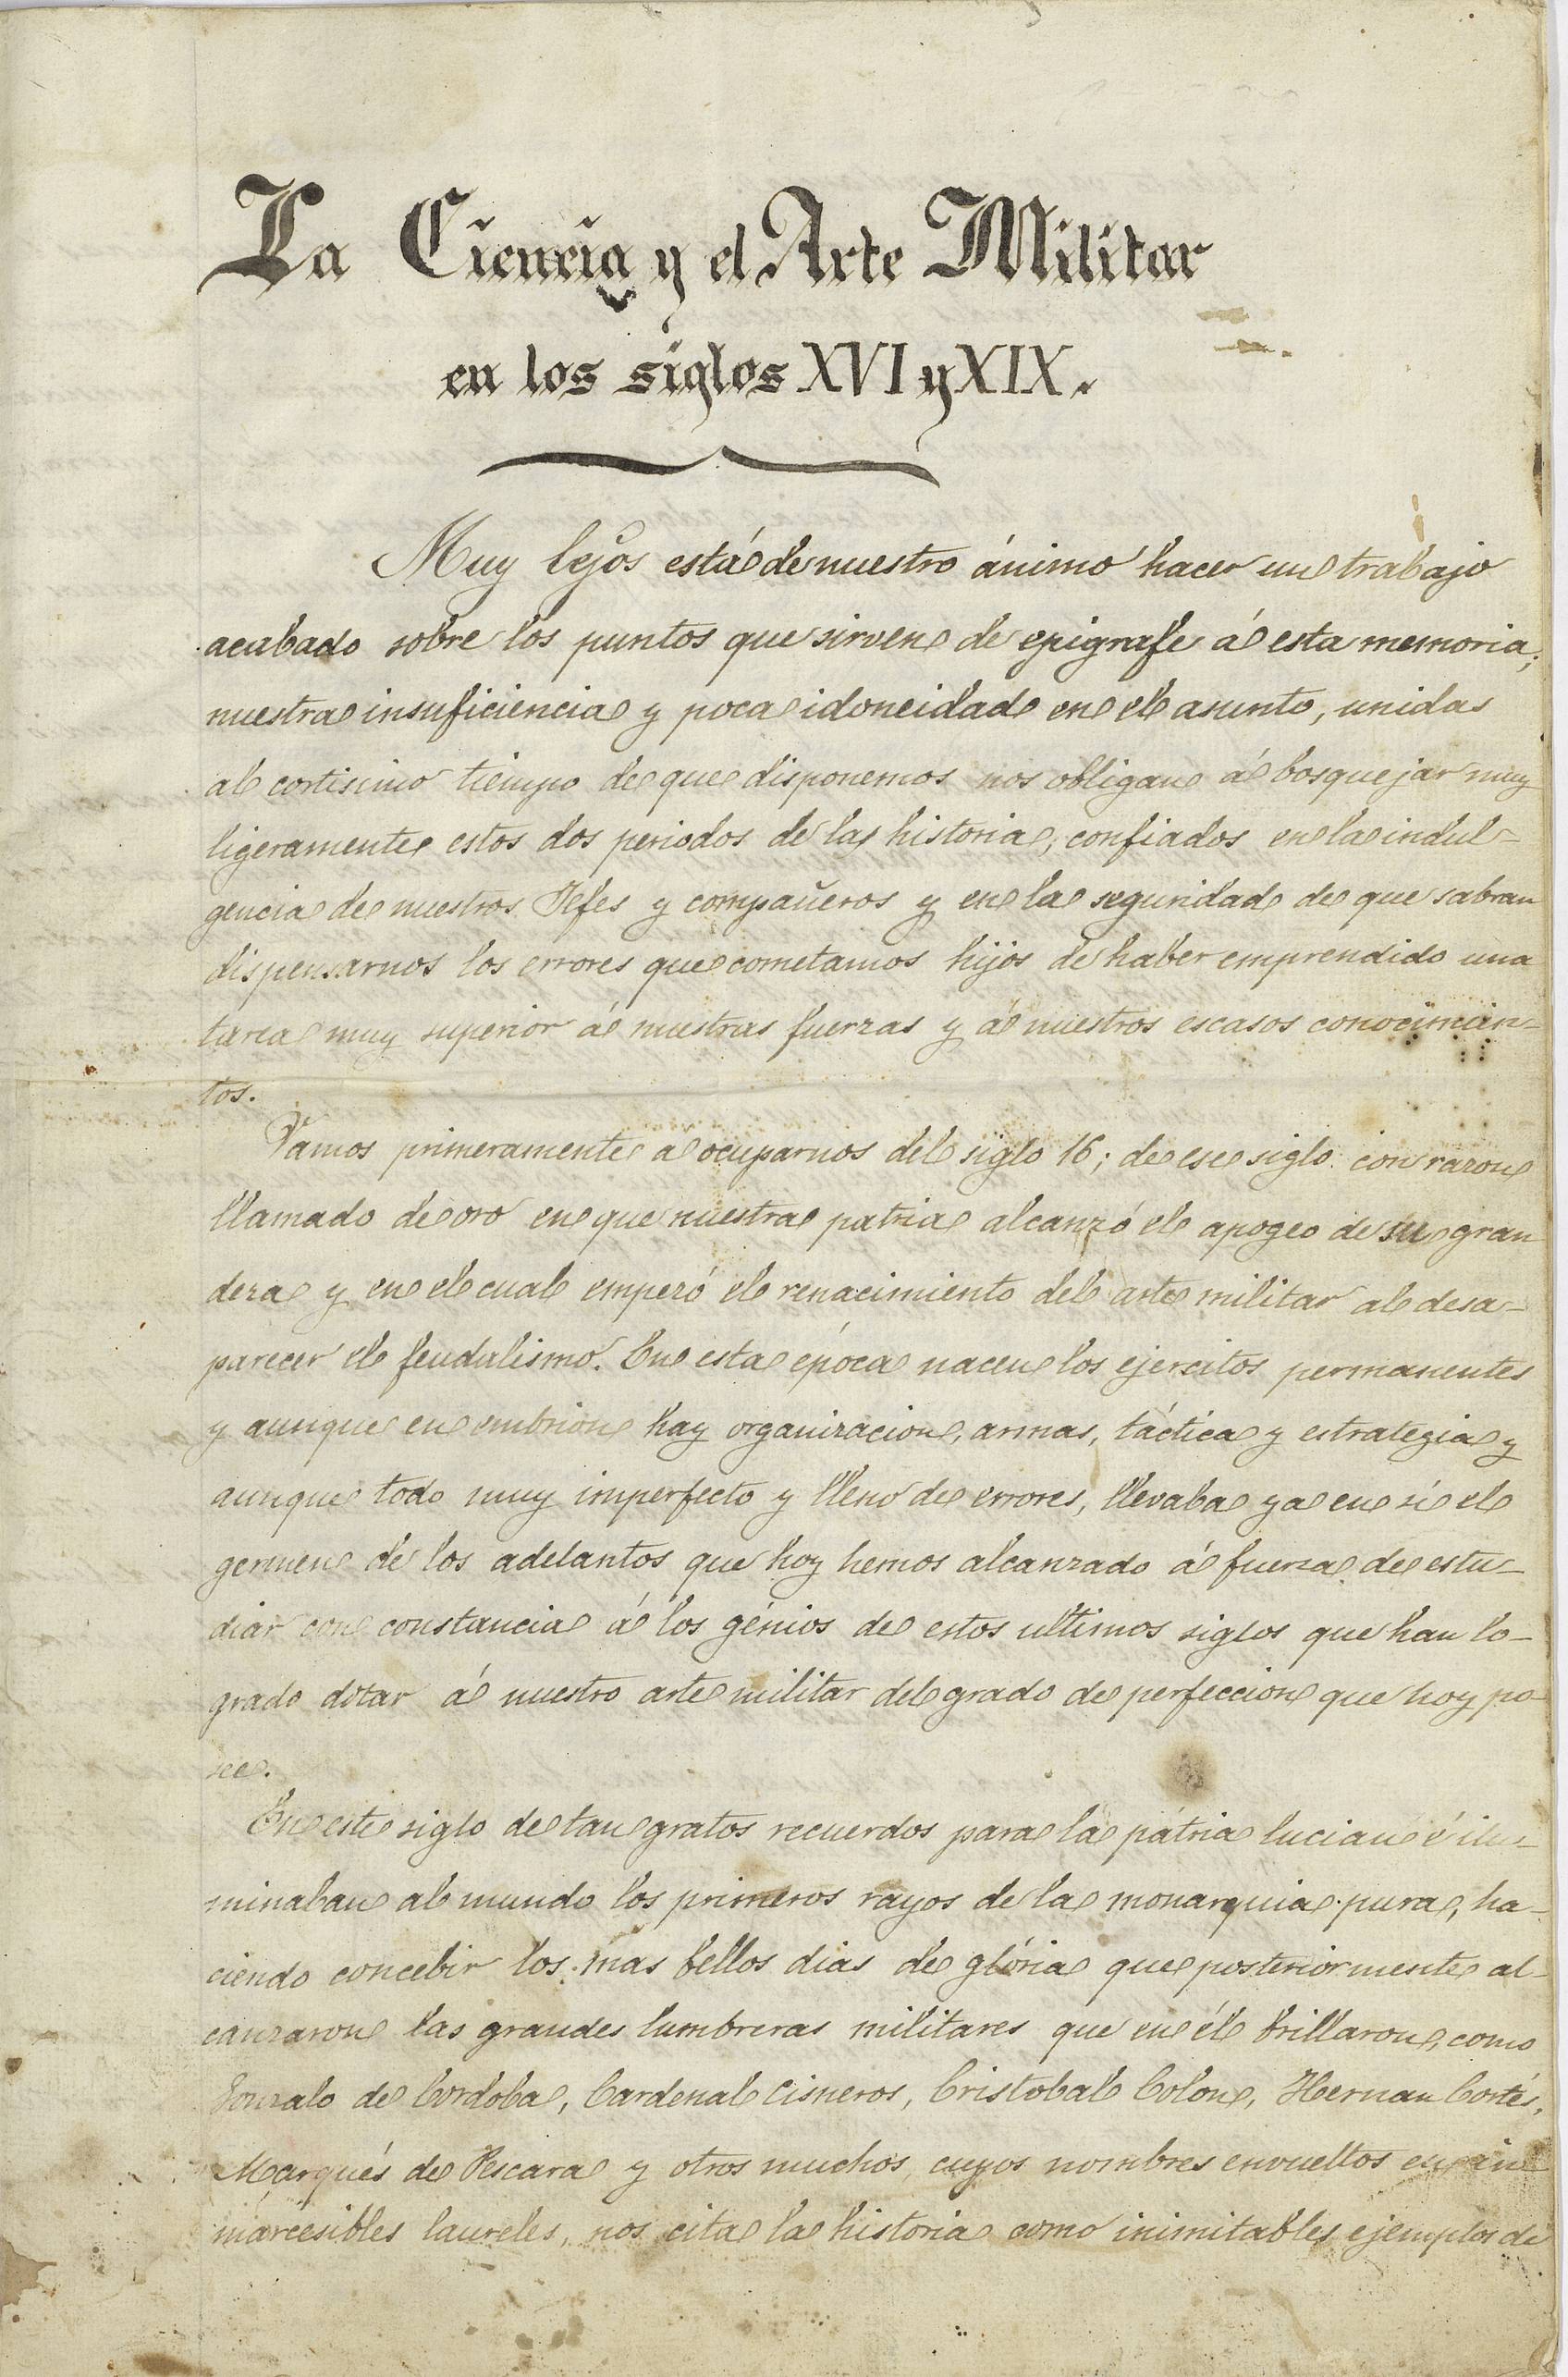 La Ciencia y el Arte Militar
en los siglos XVI y XIX.
Muy lejos está de nuestro ánimo hacer un trabajo
acabado sobre los puntos que sirven de epigrafe á esta memoria;
nuestra insuficiencia y poca idoneidad en el asunto, unidas
al cortisimo tiempo de que disponemos nos obligan á bosquejar muy
ligeramente estos dos periodos de la historia, confiados en la indul-
gencia de nuestros Jefes y compañeros y en la seguridad de que sabran
dispensarnos los errores que cometamos hijos de haber emprendido una
tarea muy superior á nuestras fuerzas y á nuestros escasos conocimien-
tos.
Vamos primeramente a ocuparnos del siglo 16; de ese siglo con razon
llamado de oro en que nuestra patria alcanzó el apogeo de su gran
deza y en el cual empezó el renacimiento del arte militar al desa-
parecer el feudalismo. En esta época nacen los ejercitos permanentes
y aunque en embrion hay organizacion, armas, táctica y estrategia y
aunque todo muy imperfecto y lleno de errores, llevaba ya en sí el
germen de los adelantos que hoy hemos alcanzado á fuerza de estu-
diar con constancia á los génios de estos ultimos siglos que han lo-
grado dotar á nuestro arte militar del grado de perfeccion que hoy po-
see.
En este siglo de tan gratos recuerdos para la pátria lucian é ilu-
minaban al mundo los primeros rayos de la monarquia pura, ha-
ciendo concebir los mas bellos dias de glória que posteriormente al-
canzaron las grandes lumbreras militares que en él brillaron, como
Gonzalo de Cordoba, Cardenal Cisneros, Cristobal Colon, Hernan Cortés,
Marqués de Pescara y otros muchos, cuyos nombres envueltos en in
marcesibles laureles, nos cita la historia como inimitables ejemplos de